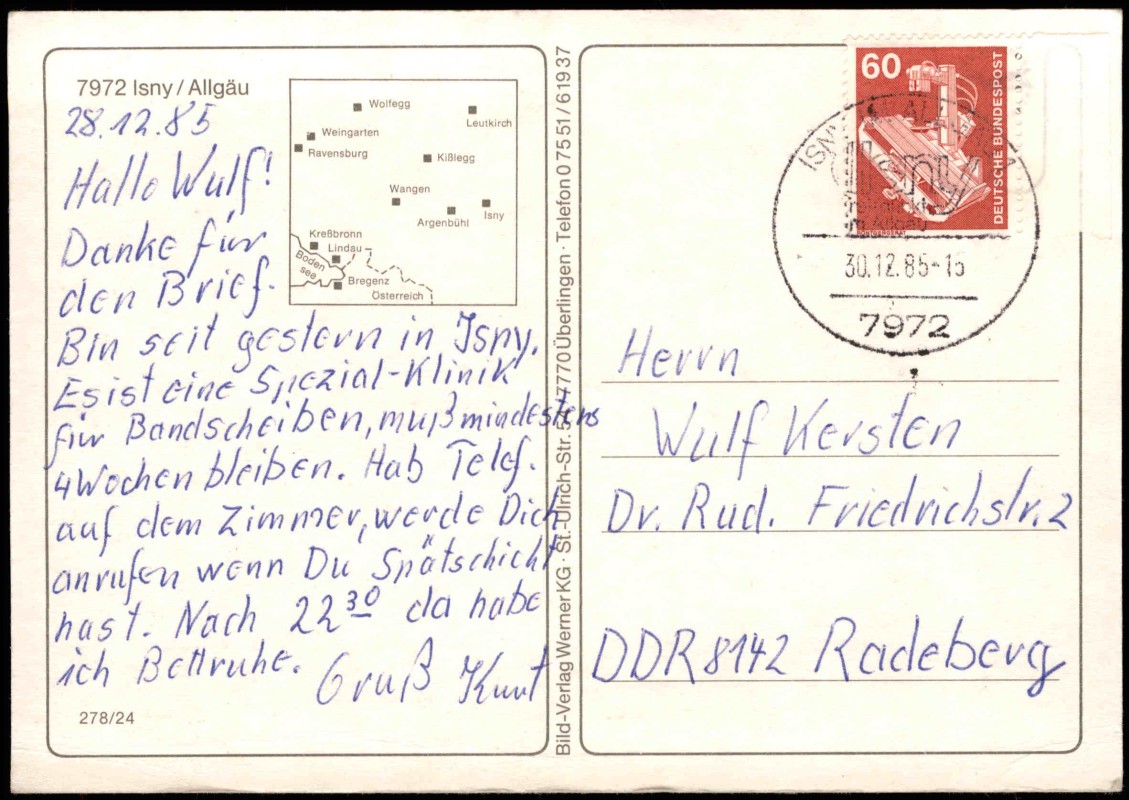 7972 Isny / Allgäu
28.12.85
Hallo Wulf!
Danke für
den Brief.
Bin seit gestern in Isny.
Es ist eine Spezial-Klinik
für Bandscheiben, muß mindestens
4 Wochen bleiben. Hab Telef.
auf dem Zimmer, werde Dich
anrufen wenn Du Spätschicht
hast. Nach 22 30 da habe
ich Bettruhe.
Gruß Kurt
278/24
Wolfegg
Leutkirch
Weingarten
Ravensburg
Kißlegg
Wangen
Argenbühl
Isny
Kreßbronn
Lindau
Boden
see
Bregenz
Österreich
Bild-Verlag Werner KG · St.-Ulrich-Str. 5 · 7770 Überlingen · Telefon 0 75 51 / 6 19 37
60
DEUTSCHE BUNDESPOST
Isny
im Allgäu
30.12.85-15
7972
Herrn
Wulf Kersten
Dr. Rud. Friedrichstr. 2
DDR 8142 Radeberg